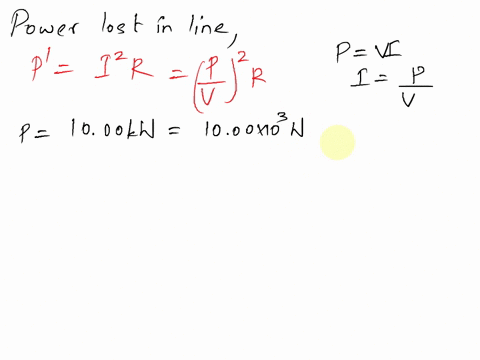 Power lost in line,
P' = I²R = (P/V)²R
P = VI
I = P/V
P = 10.00kW = 10.00×10³W